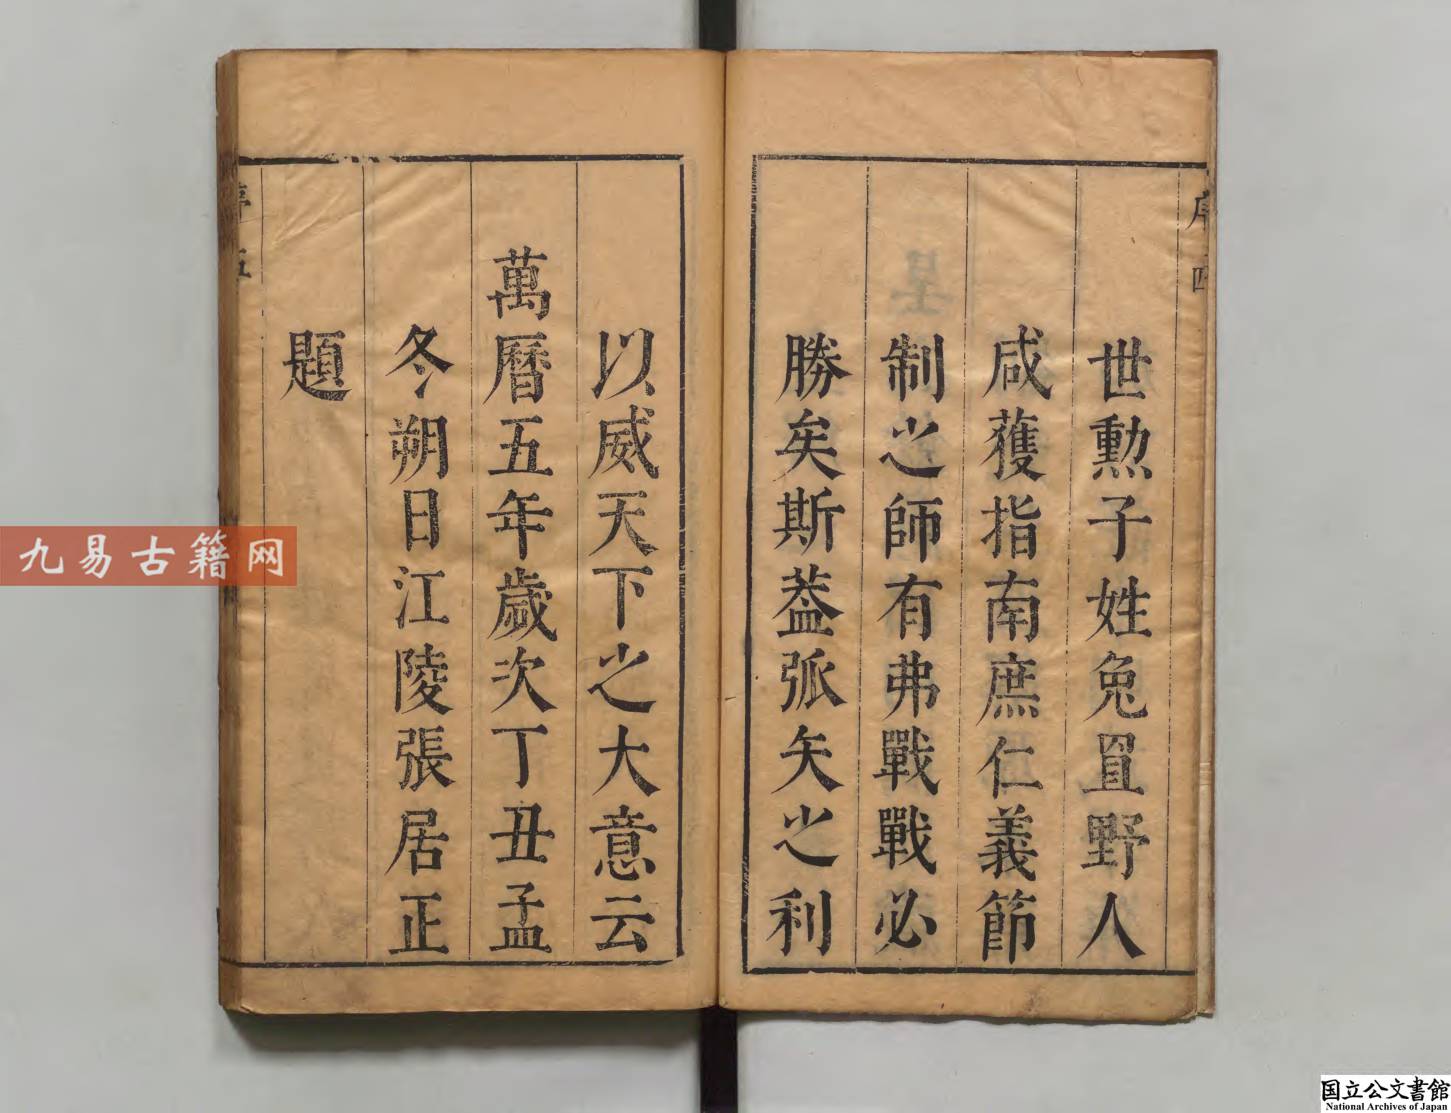 世勲子姓兔罝野人
咸獲指南庶仁義節
制之師有弗戰戰必
勝矣斯葢弧矢之利
以威天下之大意云
萬曆五年歲次丁丑孟
冬朔日江陵張居正
題
序四
序五
九易古籍网
国立公文書館
National Archives of Japan